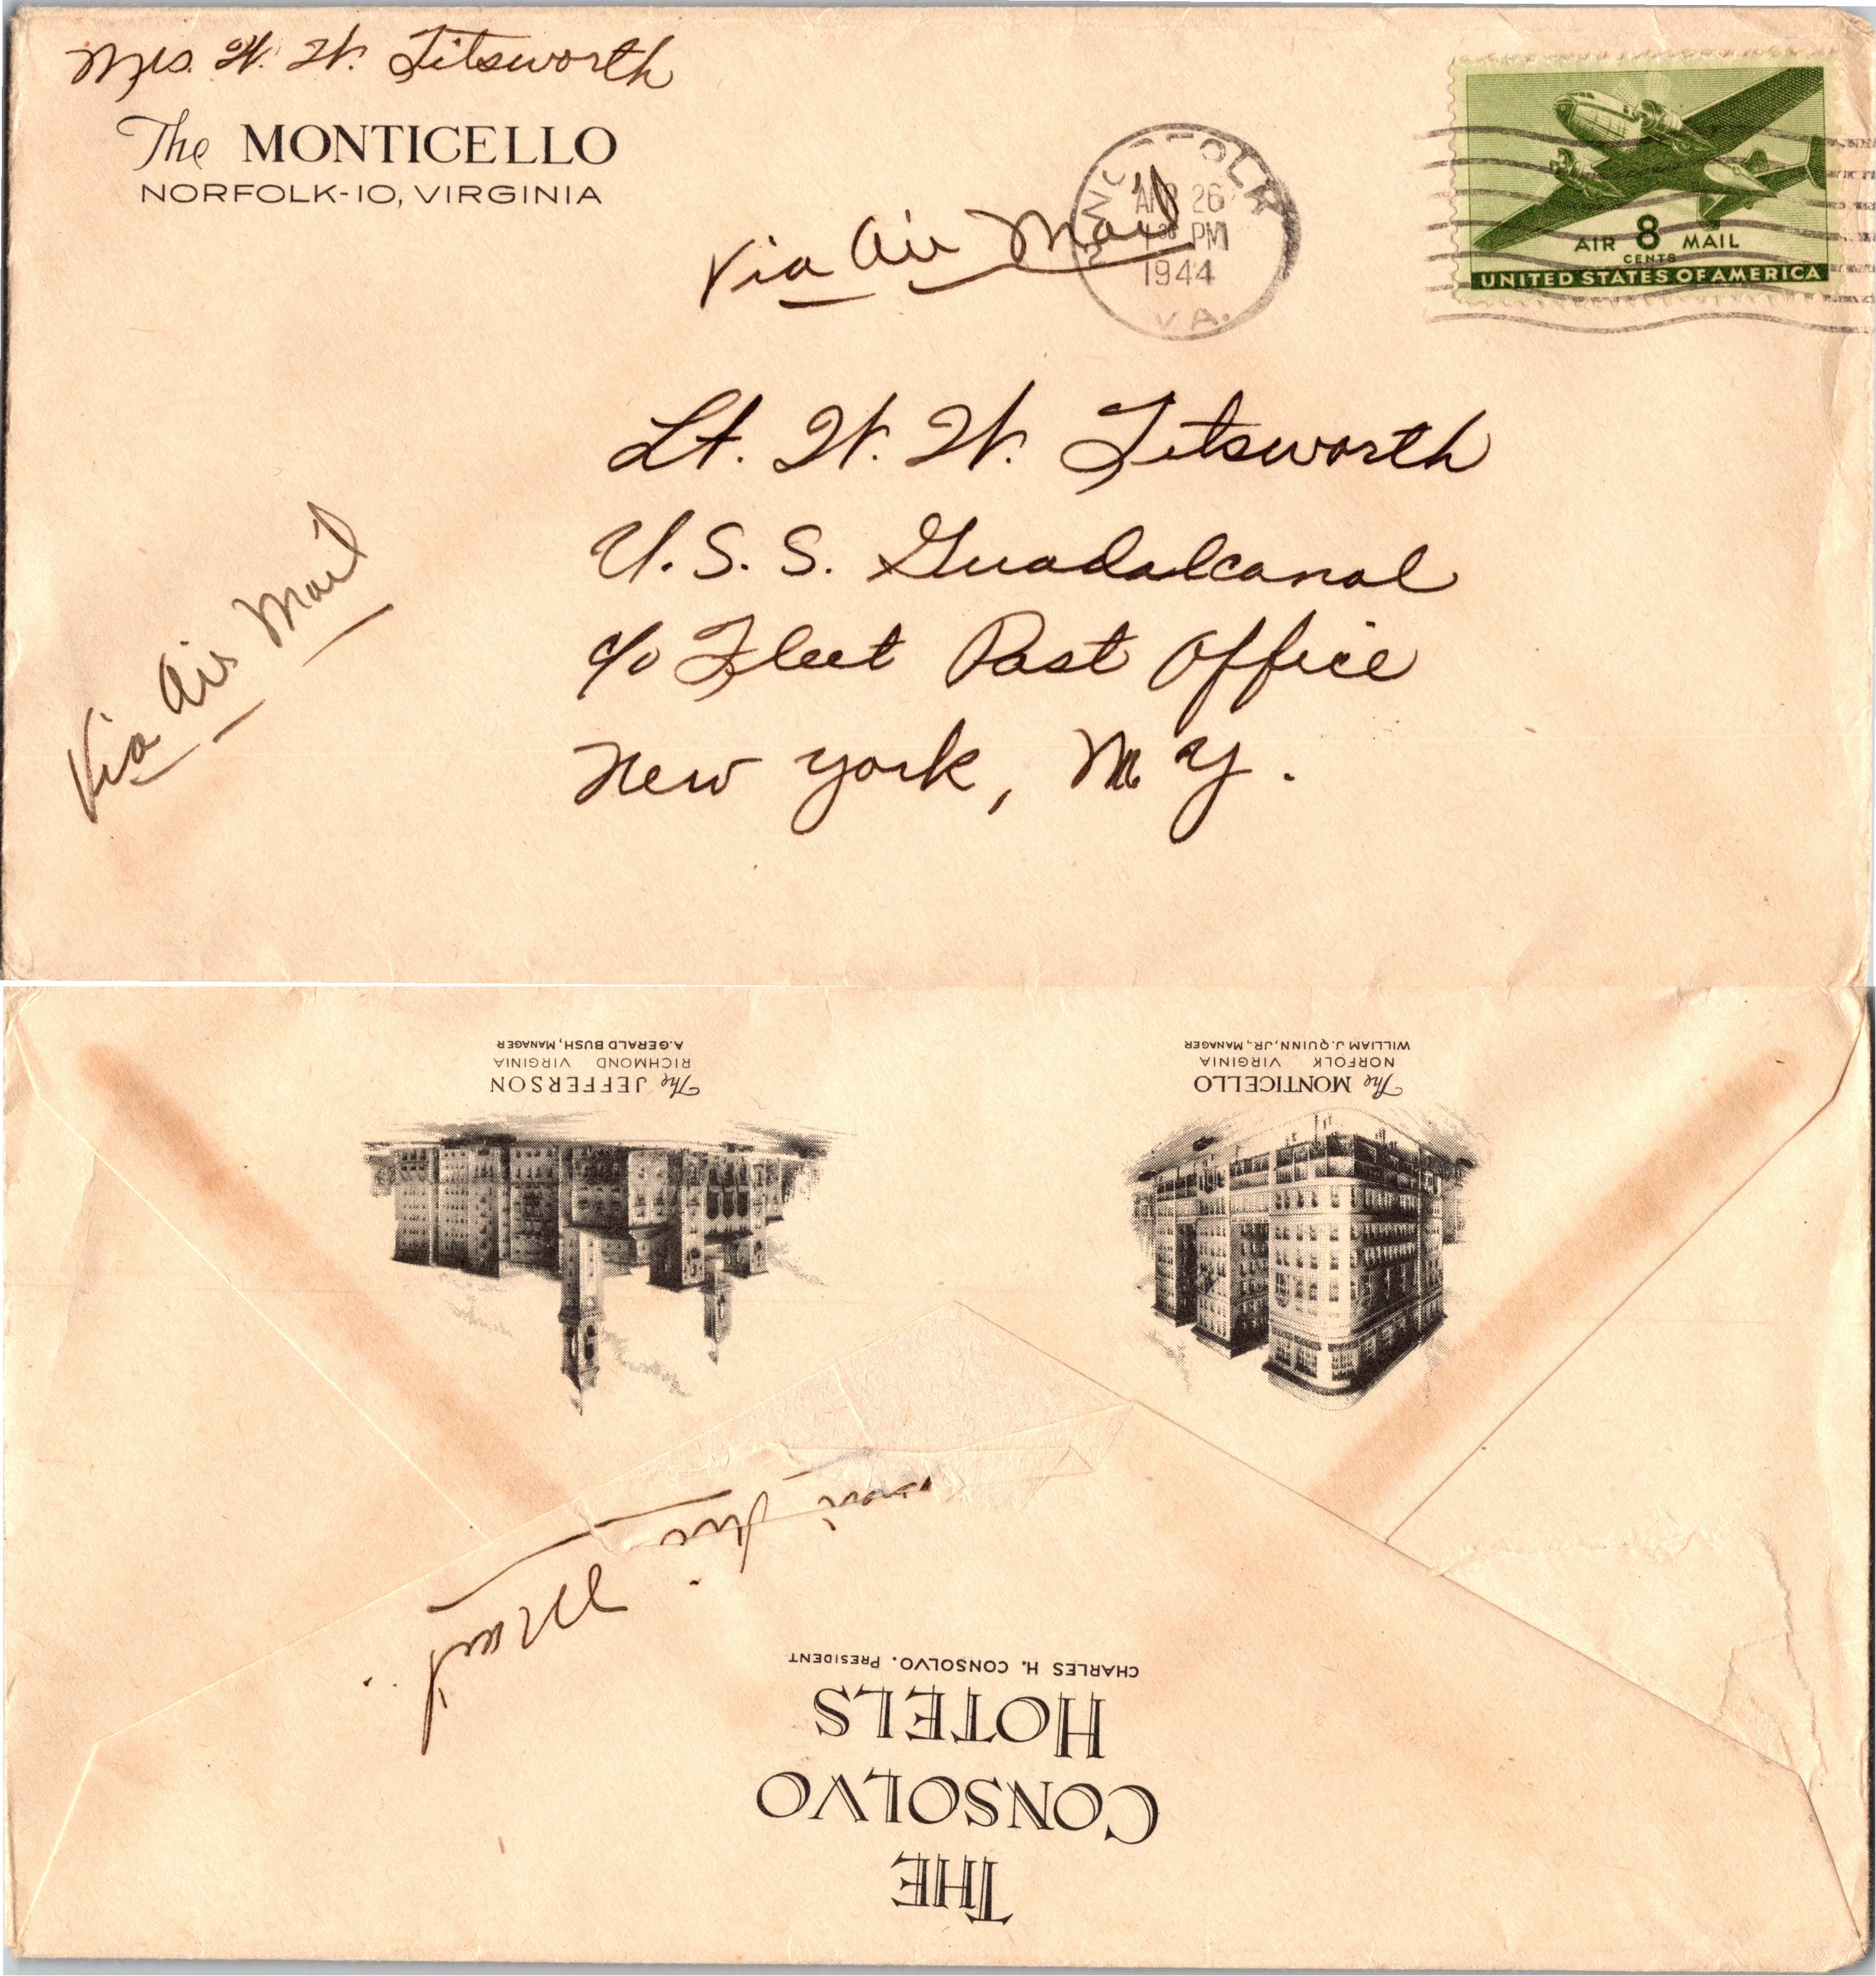 Mrs. W. W. Titsworth
The MONTICELLO
NORFOLK-10, VIRGINIA
NORFOLK
26
PM
1944
VA.
AIR 8 MAIL
CENTS
UNITED STATES OF AMERICA
Via Air Mail
Lt. W. W. Titsworth
U.S.S. Guadalcanal
c/o Fleet Post Office
New York, N Y.
Via Air Mail
THE
CONSOLVO
HOTELS
CHARLES H. CONSOLVO, PRESIDENT
Mail
The MONTICELLO
NORFOLK VIRGINIA
WILLIAM J. QUINN, JR., MANAGER
The JEFFERSON
RICHMOND VIRGINIA
A. GERALD BUSH, MANAGER